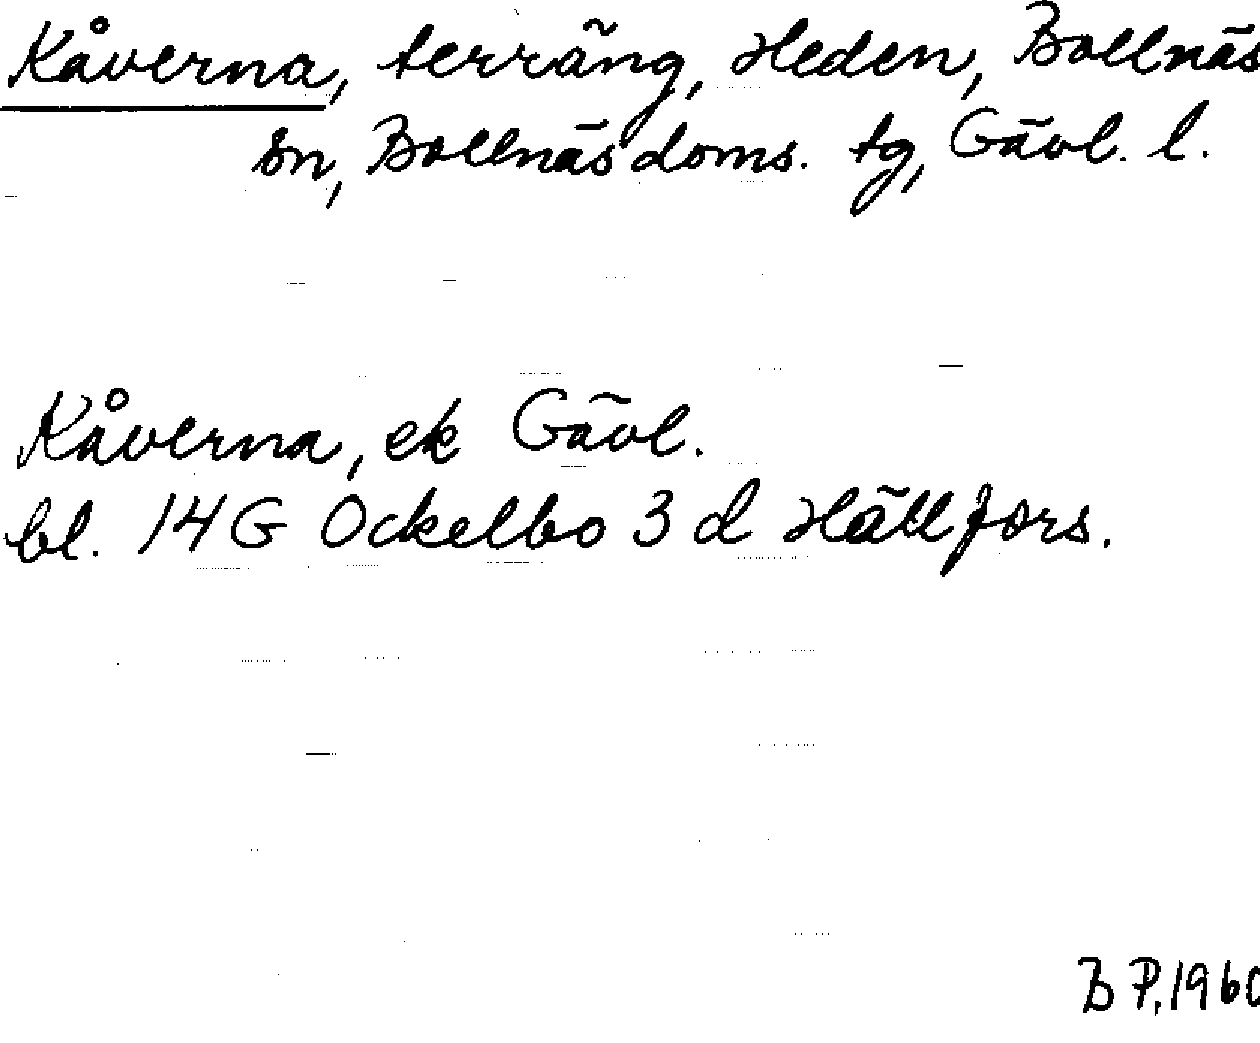 Kåverna, terräng, Heden, Bollnäs
sn, Bollnäs doms. tg, Gävl. l.
Kåverna, ek Gävl.
bl. 14G Ockelbo 3 d Hällfors.
B P, 1960